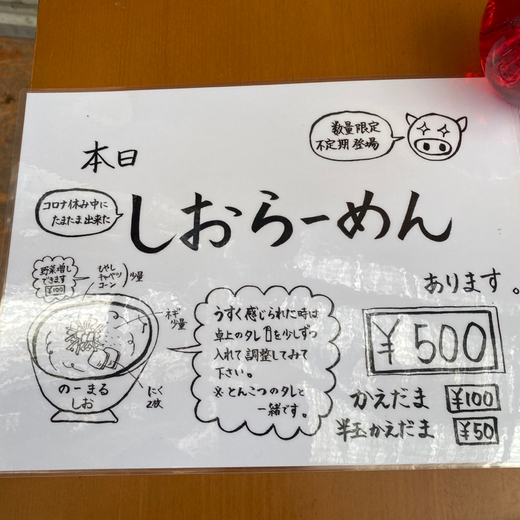 数量限定
不定期登場
本日
コロナ休み中に
たまたま出来た
しおらーめん
あります。
野菜増し
できます
¥100
もやし
キャベツ
コーン
少量
ネギ
少量
のーまる
しお
にく
2枚
うすく感じられた時は
卓上のタレを少しずつ
入れて調整してみて
下さい。
※とんこつのタレと
一緒です。
¥500
かえだま ¥100
半玉かえだま ¥50